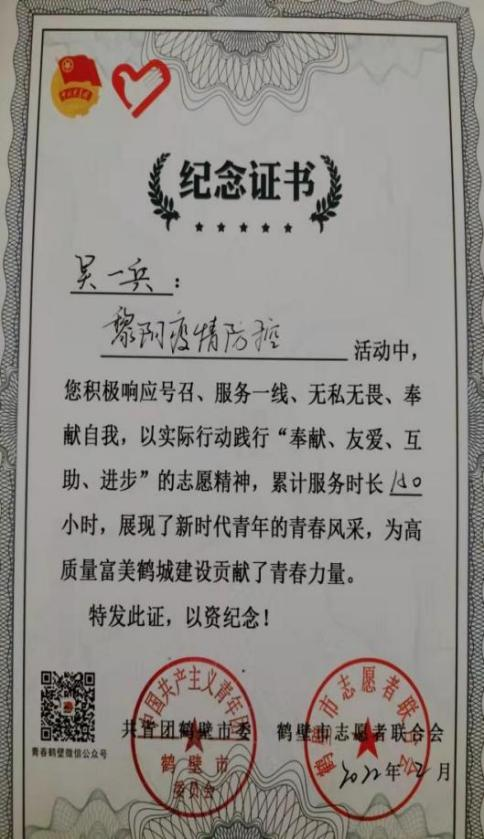 纪念证书
吴一兵：
黎阳疫情防控活动中，
您积极响应号召、服务一线、无私无畏、奉
献自我，以实际行动践行“奉献、友爱、互
助、进步”的志愿精神，累计服务时长150
小时，展现了新时代青年的青春风采，为高
质量富美鹤城建设贡献了青春力量。
特发此证，以资纪念！
中国共产主义青年团
鹤壁市
委员会
鹤壁市志愿者联合会
共青团鹤壁市委 鹤壁市志愿者联合会
青春鹤壁微信公众号
2022年2月